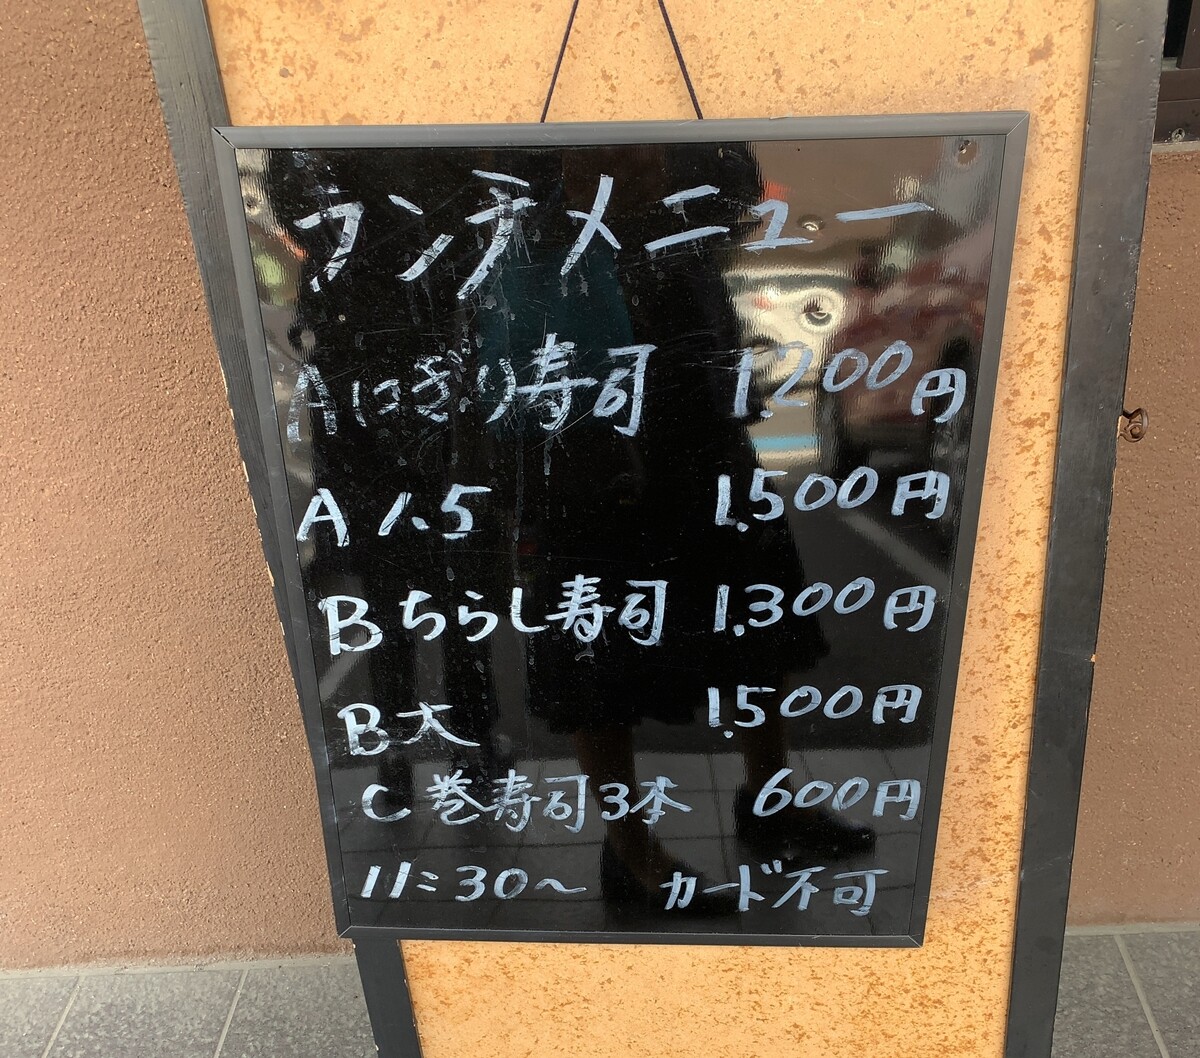 ランチメニュー
A にぎり寿司 1,200円
A 1.5 1,500円
B ちらし寿司 1,300円
B 大 1,500円
C 巻寿司3本 600円
11:30〜 カード不可